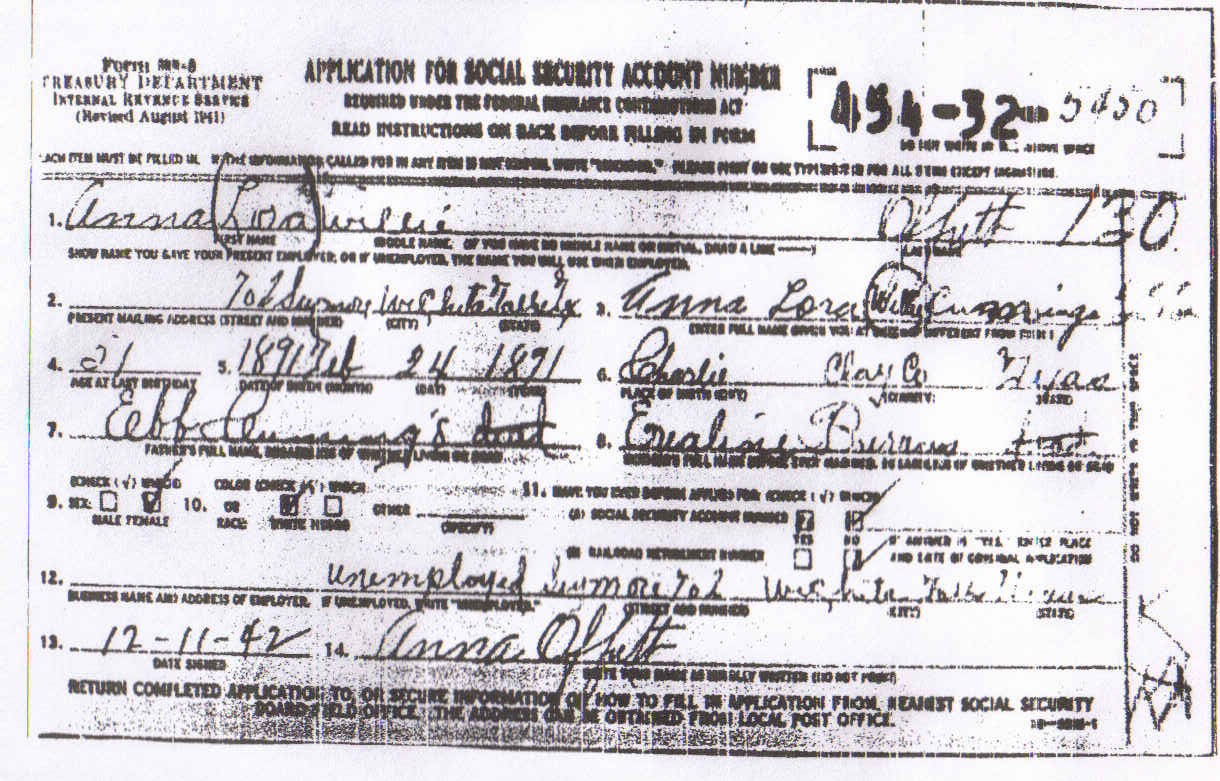 FORM SS-5
TREASURY DEPARTMENT
INTERNAL REVENUE SERVICE
(Revised August 1941)
APPLICATION FOR SOCIAL SECURITY ACCOUNT NUMBER
REQUIRED UNDER THE FEDERAL INSURANCE CONTRIBUTIONS ACT
READ INSTRUCTIONS ON BACK BEFORE FILLING IN FORM
454-32-5450
DO NOT WRITE IN THE ABOVE SPACE
EACH ITEM MUST BE FILLED IN. IF THE INFORMATION CALLED FOR IN ANY ITEM IS NOT KNOWN, WRITE "UNKNOWN." PLEASE PRINT OR USE TYPEWRITER FOR ALL ITEMS EXCEPT SIGNATURE.
1. Anna Lora Willie 130
FIRST NAME MIDDLE NAME. (IF YOU HAVE NO MIDDLE NAME OR INITIAL, DRAW A LINE ——) LAST NAME
SHOW NAME YOU GAVE YOUR PRESENT EMPLOYER, OR IF UNEMPLOYED, THE NAME YOU WILL USE WHEN EMPLOYED.
2. 702 Seymore Wichita Falls Tex 3. Anna Lora Cummings
PRESENT MAILING ADDRESS (STREET AND NUMBER) (CITY) (STATE) DIFFERENT FROM ITEM 1
4. 51 5. 1891 Feb 24 1891 6. Charlie Clay Co Texas
AGE AT LAST BIRTHDAY DATE OF BIRTH (MONTH) (DAY) (YEAR) PLACE OF BIRTH (CITY) (COUNTY) (STATE)
7. Ebb Cumming's 8.
FATHER'S FULL NAME, REGARDLESS OF WHETHER LIVING OR DEAD MOTHER'S FULL NAME BEFORE EVER MARRIED, REGARDLESS OF WHETHER LIVING OR DEAD
(CHECK (√) WHICH) COLOR (CHECK (√) WHICH) 11. HAVE YOU EVER BEFORE APPLIED FOR (CHECK (√) WHICH)
9. SEX: MALE FEMALE 10. OR RACE: WHITE NEGRO OTHER (SPECIFY)
(A) SOCIAL SECURITY ACCOUNT NUMBER YES NO
(B) RAILROAD RETIREMENT NUMBER
IF ANSWER IS "YES," ENTER PLACE AND DATE OF ORIGINAL APPLICATION
12. Unemployed Seymore 702 Wichita Falls Texas
BUSINESS NAME AND ADDRESS OF EMPLOYER. IF UNEMPLOYED, WRITE "UNEMPLOYED." (STREET AND NUMBER) (CITY) (STATE)
13. 12-11-42 14. Anna
DATE SIGNED WRITE YOUR NAME AS USUALLY WRITTEN (DO NOT PRINT)
RETURN COMPLETED APPLICATION TO, OR SECURE INFORMATION ON HOW TO FILL IN APPLICATION FROM, NEAREST SOCIAL SECURITY
BOARD FIELD OFFICE. THE ADDRESS CAN BE OBTAINED FROM LOCAL POST OFFICE.